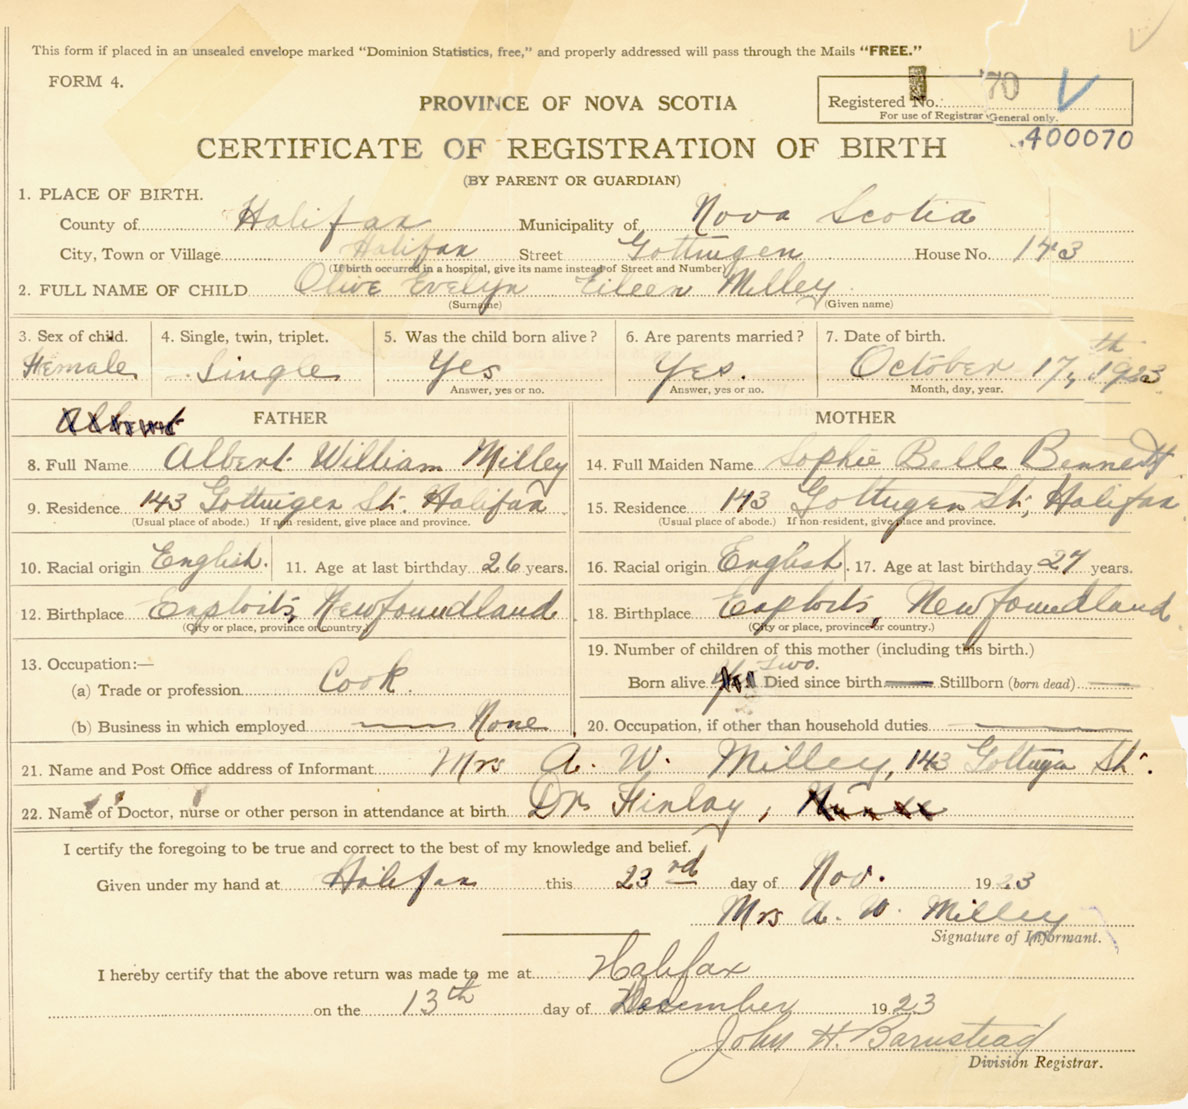 This form if placed in an unsealed envelope marked "Dominion Statistics, free," and properly addressed will pass through the Mails "FREE."
FORM 4.
PROVINCE OF NOVA SCOTIA
Registered No. 70
For use of Registrar General only.
400070
CERTIFICATE OF REGISTRATION OF BIRTH
(BY PARENT OR GUARDIAN)
1. PLACE OF BIRTH.
County of Halifax Municipality of Nova Scotia
City, Town or Village Halifax Street Gottingen House No. 143
(If birth occurred in a hospital, give its name instead of Street and Number)
2. FULL NAME OF CHILD Olive Evelyn Eileen Milley
(Surname) (Given name)
3. Sex of child. 4. Single, twin, triplet. 5. Was the child born alive? 6. Are parents married? 7. Date of birth.
Female Single Yes Yes. October 17th, 1923
Answer, yes or no. Answer, yes or no. Month, day, year.
FATHER MOTHER
8. Full Name Albert William Milley 14. Full Maiden Name Sophie Belle Bennett
9. Residence 143 Gottingen St. Halifax 15. Residence 143 Gottingen St, Halifax
(Usual place of abode.) If non resident, give place and province. (Usual place of abode.) If non-resident, give place and province.
10. Racial origin English. 11. Age at last birthday 26 years. 16. Racial origin English. 17. Age at last birthday 27 years.
12. Birthplace Exploits, Newfoundland 18. Birthplace Exploits, Newfoundland
(City or place, province or country) (City or place, province or country.)
13. Occupation:— 19. Number of children of this mother (including this birth.)
(a) Trade or profession Cook. Born alive Two. Died since birth — Stillborn (born dead) —
(b) Business in which employed — None 20. Occupation, if other than household duties —
21. Name and Post Office address of Informant Mrs A. W. Milley, 143 Gottingen St.
22. Name of Doctor, nurse or other person in attendance at birth Dr Finlay, Nurse
I certify the foregoing to be true and correct to the best of my knowledge and belief.
Given under my hand at Halifax this 23rd day of Nov. 1923
Mrs A. W. Milley
Signature of Informant.
I hereby certify that the above return was made to me at Halifax
on the 13th day of December 1923
John H. Barnstead
Division Registrar.